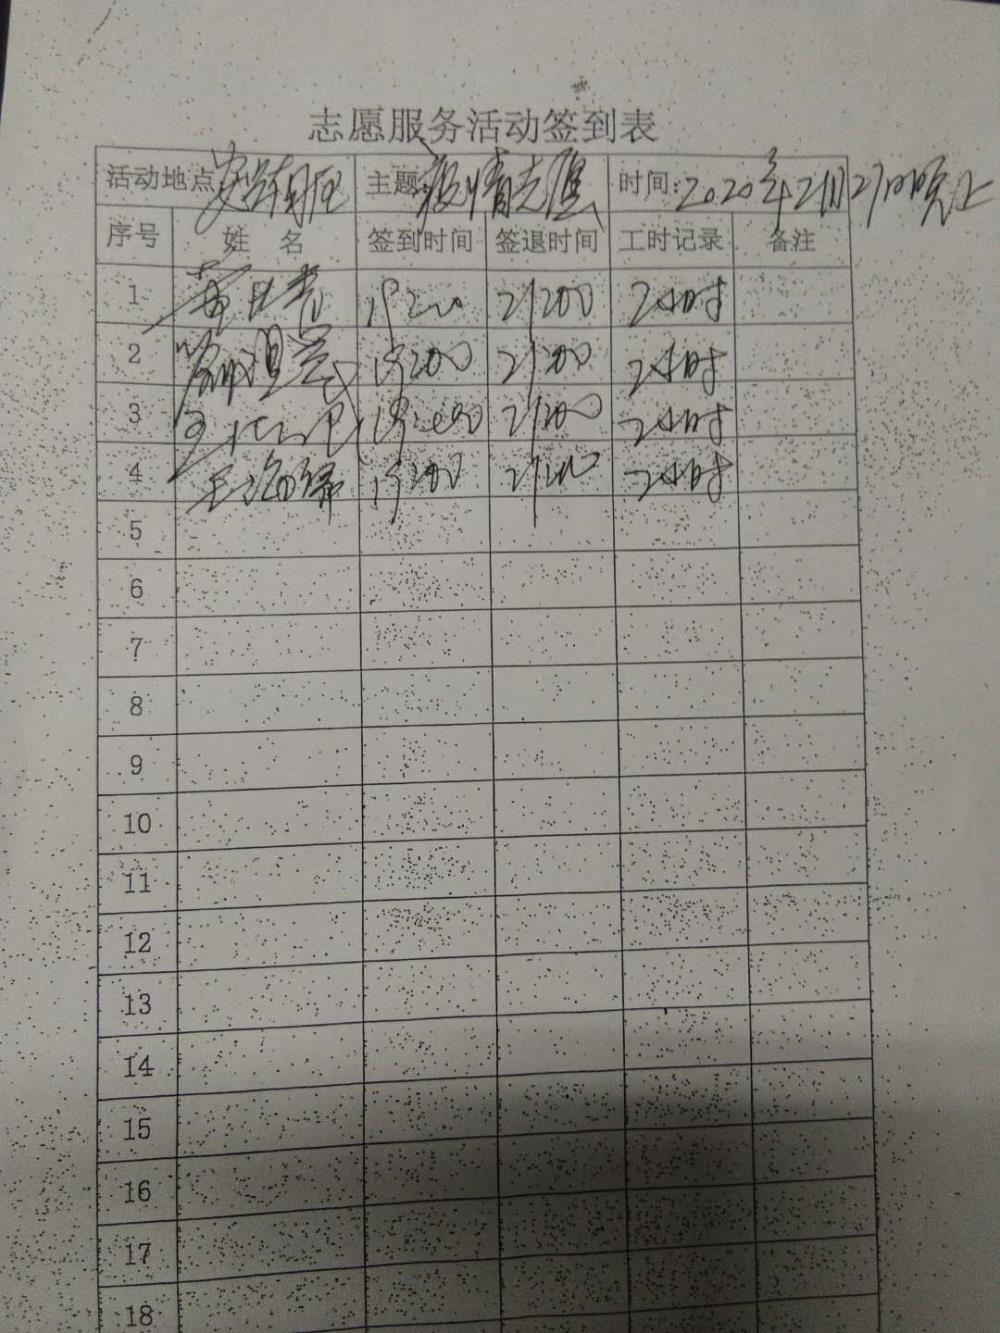 志愿服务活动签到表
活动地点 主题: 疫情志愿 时间:2020年2月27日晚上
序号 姓 名 签到时间 签退时间 工时记录 备注
1 19:00 21:00 2小时
2 19:00 21:00 2小时
3 19:00 21:00 2小时
4 王海 19:00 21:00 2小时
5
6
7
8
9
10
11
12
13
14
15
16
17
18